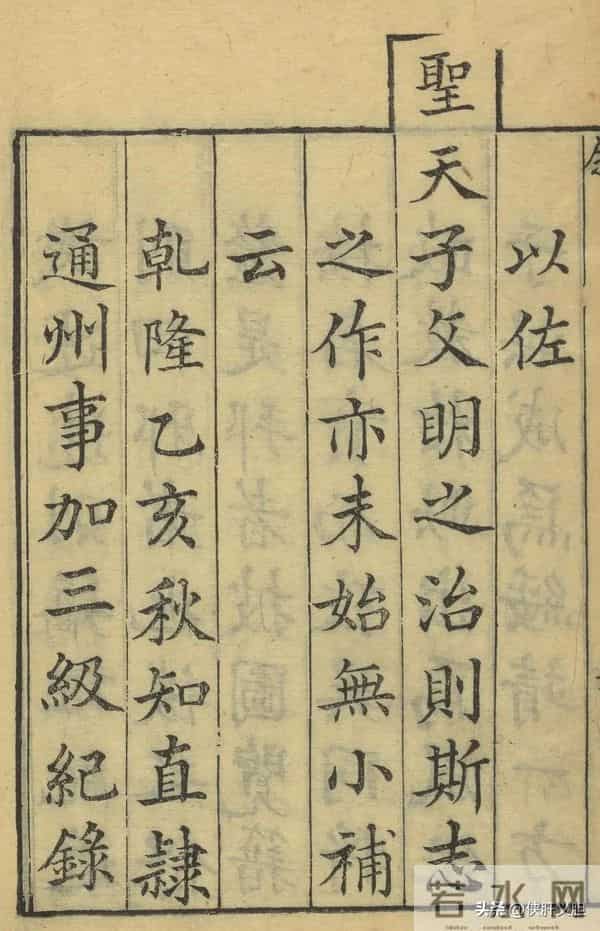 以佐
聖天子文明之治則斯志
之作亦未始無小補
云
乾隆乙亥秋知直隷
通州事加三級紀錄
若水网
头条@侠肝义胆